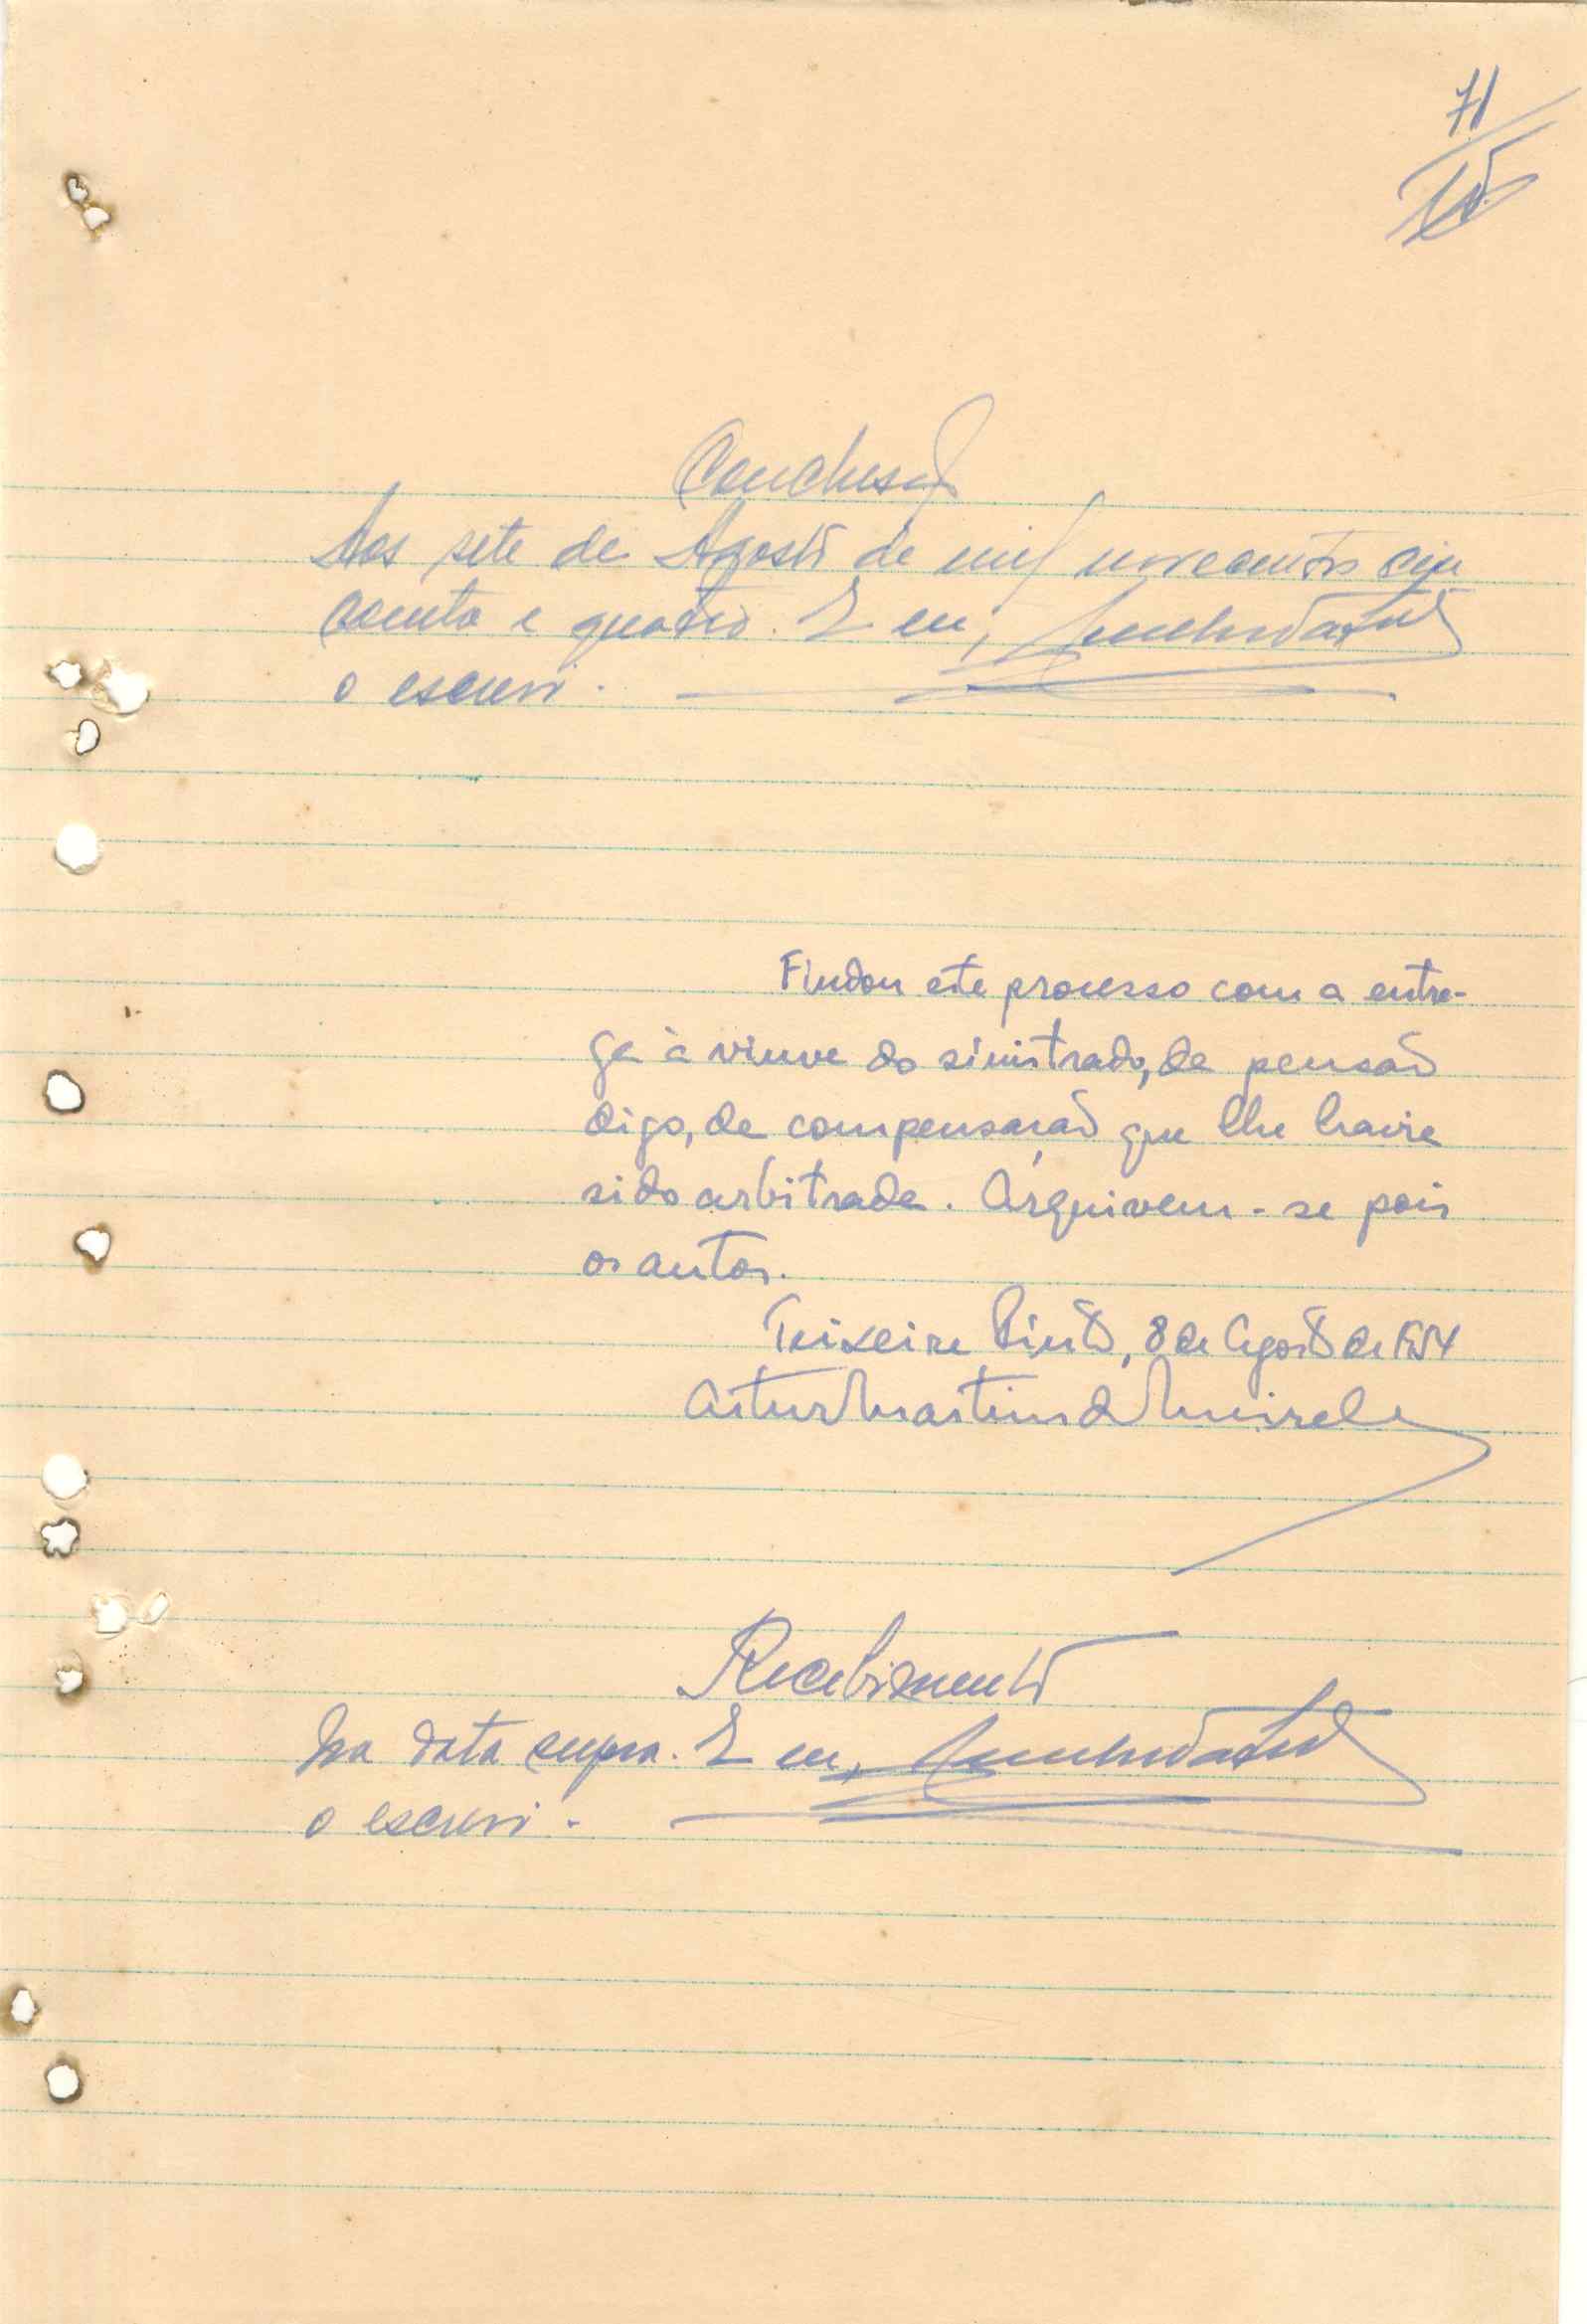 71
Conclusão
Aos sete de Agosto de mil novecentos cin
coenta e quatro. E eu,
o escrevi.
Findou este processo com a entre-
ga à viuva do sinistrado, da pensão
digo, da compensação que lhe havia
sido arbitrada. Arquivem-se pois
os autos.
Teixeira Pinto, 8 de Agosto de 1954
Artur Martins de Meireles
Recebimento
Na data supra. E eu,
o escrevi.